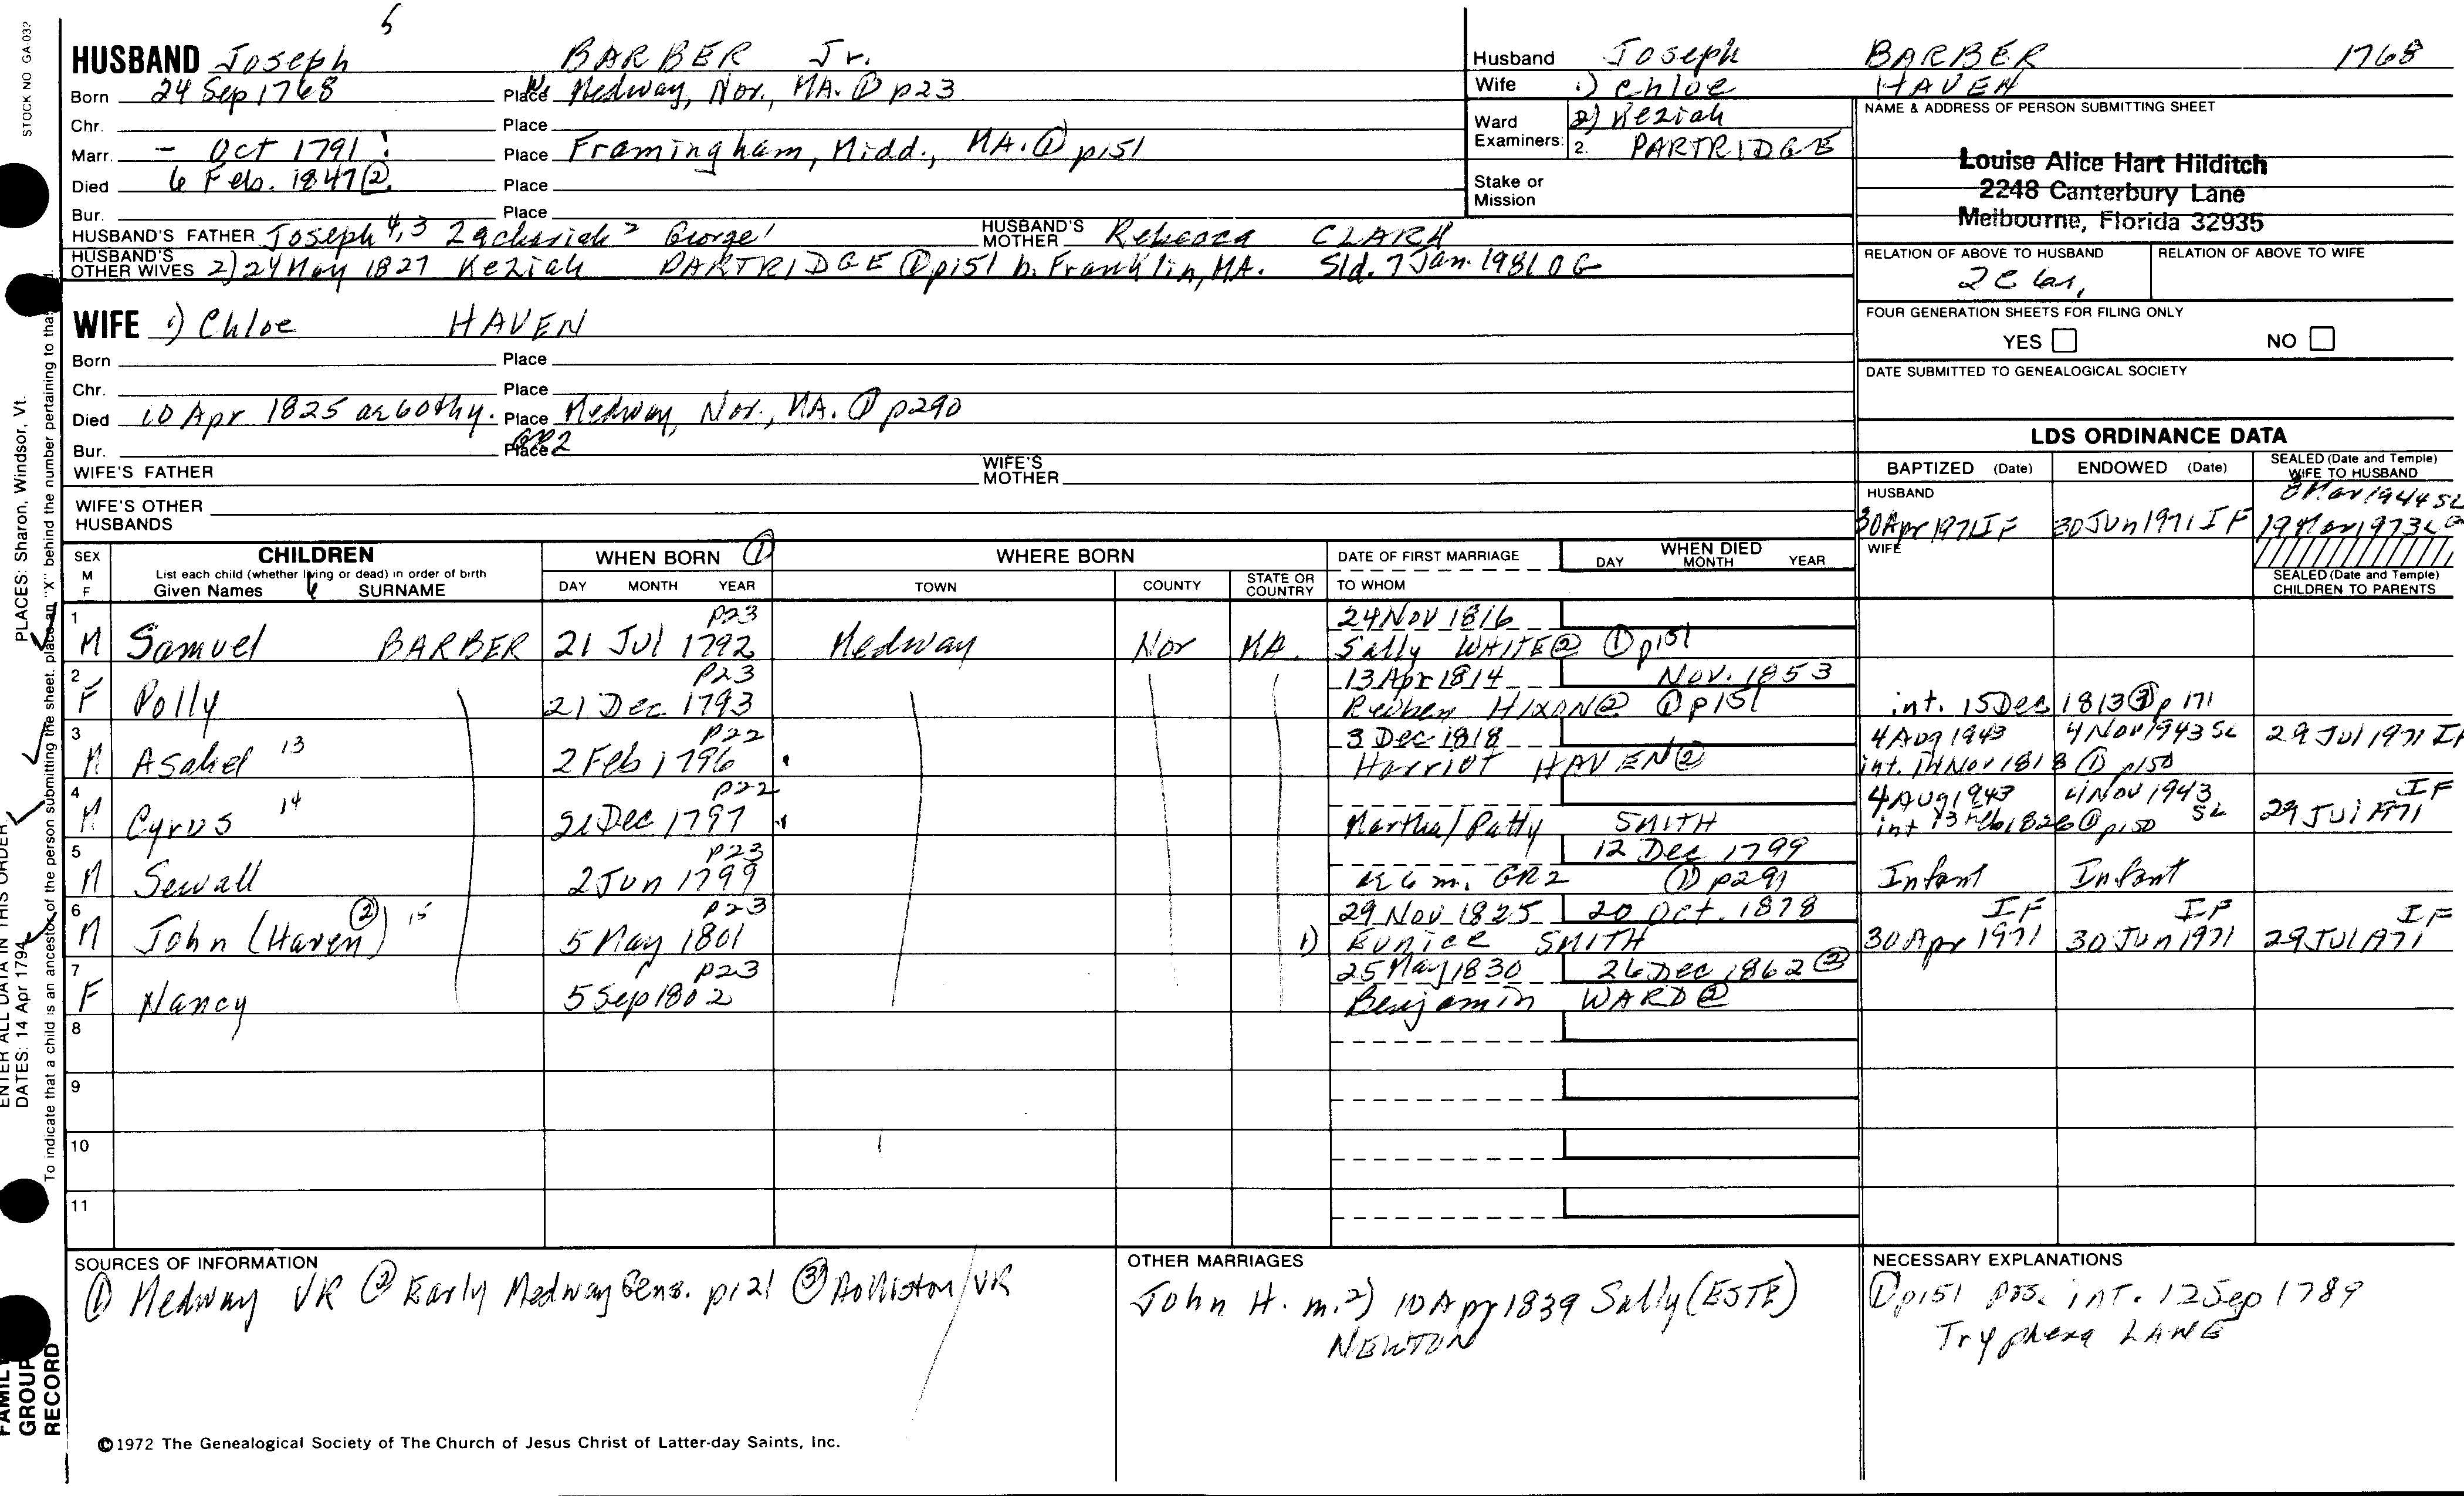 5
STOCK NO GA-032
HUSBAND Joseph BARBER Jr.
Born 24 Sep 1768 Place W. Medway, Nor., MA. ① p23
Chr. Place
Marr. - Oct 1791 Place Framingham, Midd., MA. ① p151
Died 6 Feb. 1847 ② Place
Bur. Place
HUSBAND'S FATHER Joseph 4,3 Zachariah 2 George 1 HUSBAND'S MOTHER Rebecca CLARK
HUSBAND'S OTHER WIVES 2) 24 May 1827 Keziah PARTRIDGE ① p151 b. Franklin, MA. Sld. 7 Jan. 1981 OG
Husband Joseph BARBER 1768
Wife 1) Chloe HAVEN
Ward 2) Keziah
Examiners: 2. PARTRIDGE
Stake or Mission
NAME & ADDRESS OF PERSON SUBMITTING SHEET
Louise Alice Hart Hilditch
2248 Canterbury Lane
Melbourne, Florida 32935
RELATION OF ABOVE TO HUSBAND RELATION OF ABOVE TO WIFE
FOUR GENERATION SHEETS FOR FILING ONLY
YES NO
DATE SUBMITTED TO GENEALOGICAL SOCIETY
WIFE 1) Chloe HAVEN
Born Place
Chr. Place
Died 10 Apr 1825 ae 60thy. Place Medway, Nor., MA. ① p290
Bur. Place GR2
WIFE'S FATHER WIFE'S MOTHER
WIFE'S OTHER HUSBANDS
LDS ORDINANCE DATA
BAPTIZED (Date) ENDOWED (Date) SEALED (Date and Temple) WIFE TO HUSBAND
HUSBAND 8 Mar 1944 SL
30 Apr 1971 IF 30 Jun 1971 IF 19 Mar 1973
WIFE
SEALED (Date and Temple) CHILDREN TO PARENTS
SEX M F CHILDREN WHEN BORN ① WHERE BORN DATE OF FIRST MARRIAGE WHEN DIED
List each child (whether living or dead) in order of birth
Given Names SURNAME DAY MONTH YEAR TOWN COUNTY STATE OR COUNTRY TO WHOM DAY MONTH YEAR
1 p23 24 Nov 1816
M Samuel BARBER 21 Jul 1792 Medway Nor MA. Sally WHITE ② ① p151
2 p23 13 Apr 1814 Nov. 1853
F Polly 21 Dec. 1793 Reuben HIXON ② ① p151 int. 15 Dec 1813 ③ p 171
3 p22 3 Dec 1818 4 Aug 1943 4 Nov 1943 SL 29 Jul 1971 IF
M Asahel 13 2 Feb 1796 Harriot HAVEN ② int. 14 Nov 1818 ① p150
4 p22 4 Aug 1943 4 Nov 1943 SL 29 Jul 1971 IF
M Cyrus 14 21 Dec 1797 Martha/Patty SMITH int 13 Feb 1826 ① p150
5 p23 12 Dec 1799
M Sewall 2 Jun 1799 ae 6 m. GR2 ① p291 Infant Infant
6 p23 29 Nov 1825 20 Oct. 1878 IF IF IF
M John (Haven) ② 15 5 May 1801 1) Eunice SMITH 30 Apr 1971 30 Jun 1971 29 Jul 1971
7 p23 25 May 1830 26 Dec 1862 ②
F Nancy 5 Sep 1802 Benjamin WARD ②
8
9
10
11
SOURCES OF INFORMATION
① Medway VR ② Early Medway Gens. p121 ③ Holliston VR
OTHER MARRIAGES
John H. m. 2) 10 Apr 1839 Sally (ESTE)
NEWTON
NECESSARY EXPLANATIONS
① p151 pos. int. 12 Sep 1789
Tryphena LANE
©1972 The Genealogical Society of The Church of Jesus Christ of Latter-day Saints, Inc.
PLACES: Sharon, Windsor, Vt.
ENTER ALL DATA IN THIS ORDER:
DATES: 14 Apr 1794
To indicate that a child is an ancestor of the person submitting the sheet, place an "X" behind the number pertaining to that
FAMILY GROUP RECORD